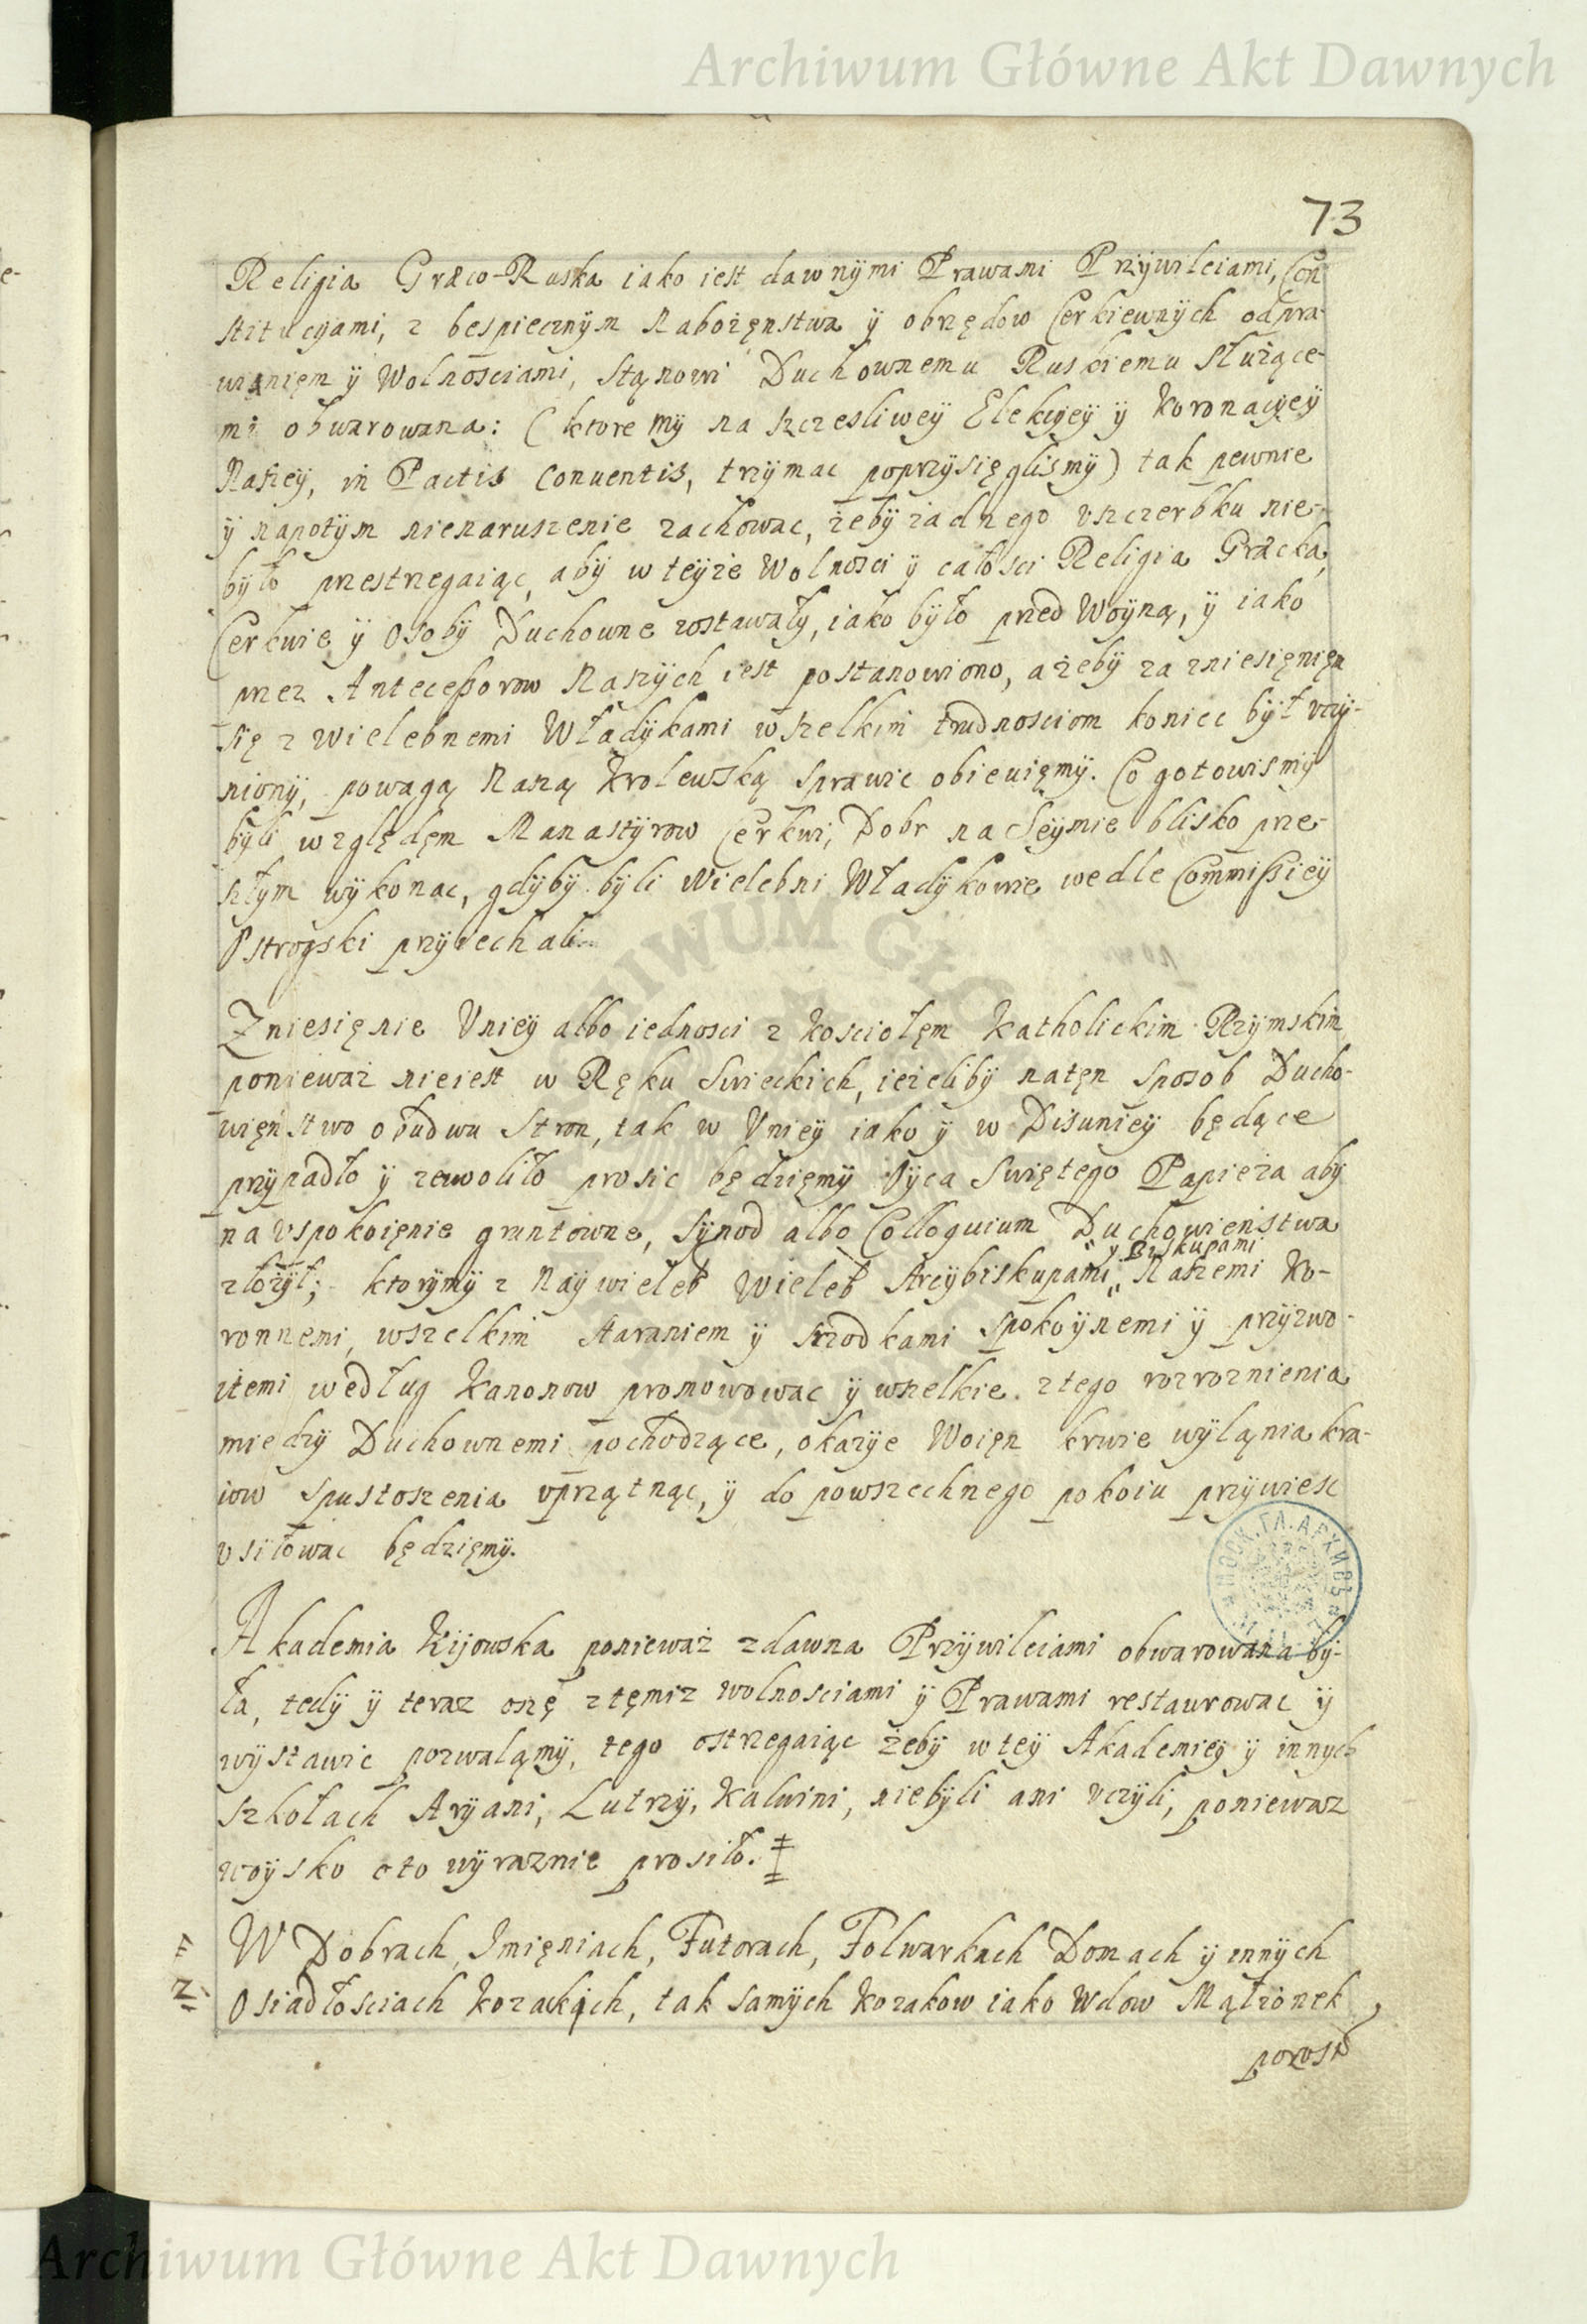 Archiwum Główne Akt Dawnych
73
Religia Græco-Ruska iako iest dawnÿmi Prawami Przÿwileiami, Con
stitucÿami, z bespiecznÿm Nabożęnstwa ÿ obrzędow Cerkiewnÿch odpra-
wianięm ÿ Wolnosciami, Stąnowi Duchownemu Ruskiemu Służące-
mi obwarowana: (ktore mÿ na szczesliweÿ Elekcÿeÿ ÿ Koronacÿeÿ
Naszeÿ, in Pactis Conventis, trzÿmac poprzÿsięglismÿ) tak pewnie
ÿ napotÿm nienaruszenie zachowac, żebÿ żadnego vszczerbku nie-
bÿło przestrzegaiąc, abÿ w teÿże Wolnosci ÿ całosci Religia Græcka,
Cerkwie ÿ Osobÿ Duchowne zostawałÿ, iako bÿło przed Woÿną, ÿ iako
przez Anteceßorow Naszÿch iest postanowiono, a żebÿ za zniesięnięm
się z Wielebnemi Władÿkami wszelkim trudnosciom koniec bÿł vczÿ-
nionÿ, powagą Naszą Krolewską sprawic obiecuięmÿ. Co gotowismÿ
bÿli względęm Manastÿrow Cerkwi, Dobr na Seÿmie blisko prze-
szłÿm wÿkonac, gdÿbÿ bÿli Wielebni Władÿkowie wedle Commißieÿ
Ostrogski przÿiechali.
Zniesięnie Vnieÿ albo iednosci z Kosciołęm Katholickim Rzÿmskim
ponieważ nieiest w Ręku Swieckich, ieżelibÿ natęn sposob Ducho-
więnstwo obudwu Stron, tak w Vnieÿ iako ÿ w Disunieÿ będące
przÿpadło ÿ zewoliło prosic będzięmÿ Oÿca Swiętego Papieża abÿ
na vspokoięnie gruntowne, Sÿnod albo Colloquium Duchowieństwa
złożÿł; ktorÿmÿ z Naÿwieleb Wieleb Arcÿbiskupami „y Biskupami„ Naszemi Ko-
ronnemi, wszelkim staraniem ÿ srzodkami spokoÿnemi ÿ przÿzwo-
itemi według Kanonow promowowac ÿ wszelkie ztego rozroznienia
miedzÿ Duchownemi pochodzące, okazÿe Woięn krwie wÿląnia kra-
iow spustoszenia vprzątnąc, ÿ do powszechnego pokoiu przÿwiesc
vsiłowac będzięmÿ.
Akademia Kijowska ponieważ zdawna Przÿwileiami obwarowana bÿ-
ła, tedÿ ÿ teraz oszę ztęmiz wolnosciami ÿ Prawami restaurowac ÿ
wÿstawic pozwaląmÿ, tego ostrzegaiąc żebÿ w teÿ Akademieÿ ÿ innych
Szkołach Arÿani, Lutrzÿ, Kalwini, niebÿli ani vczÿli, poniewaz
woÿsko oto wÿraznie prosiło.
W Dobrach, Imięniach, Futorach, Folwarkach Domach ÿ innÿch
Osiadłosciach Kozackich, tak samÿch Kozakow iako Wdow Mąłżonek
pozost
МОСК. ГЛ. АРХИВЪ
Archiwum Główne Akt Dawnych